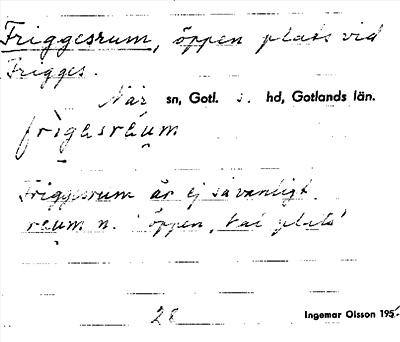 Friggesrum, öppen plats vid
Frigges.
När sn, Gotl. s. hd, Gotlands län.
frigasräum
Friggesrum är ej så vanligt.
räum n. 'öppen, kal plats'
28
Ingemar Olsson 195